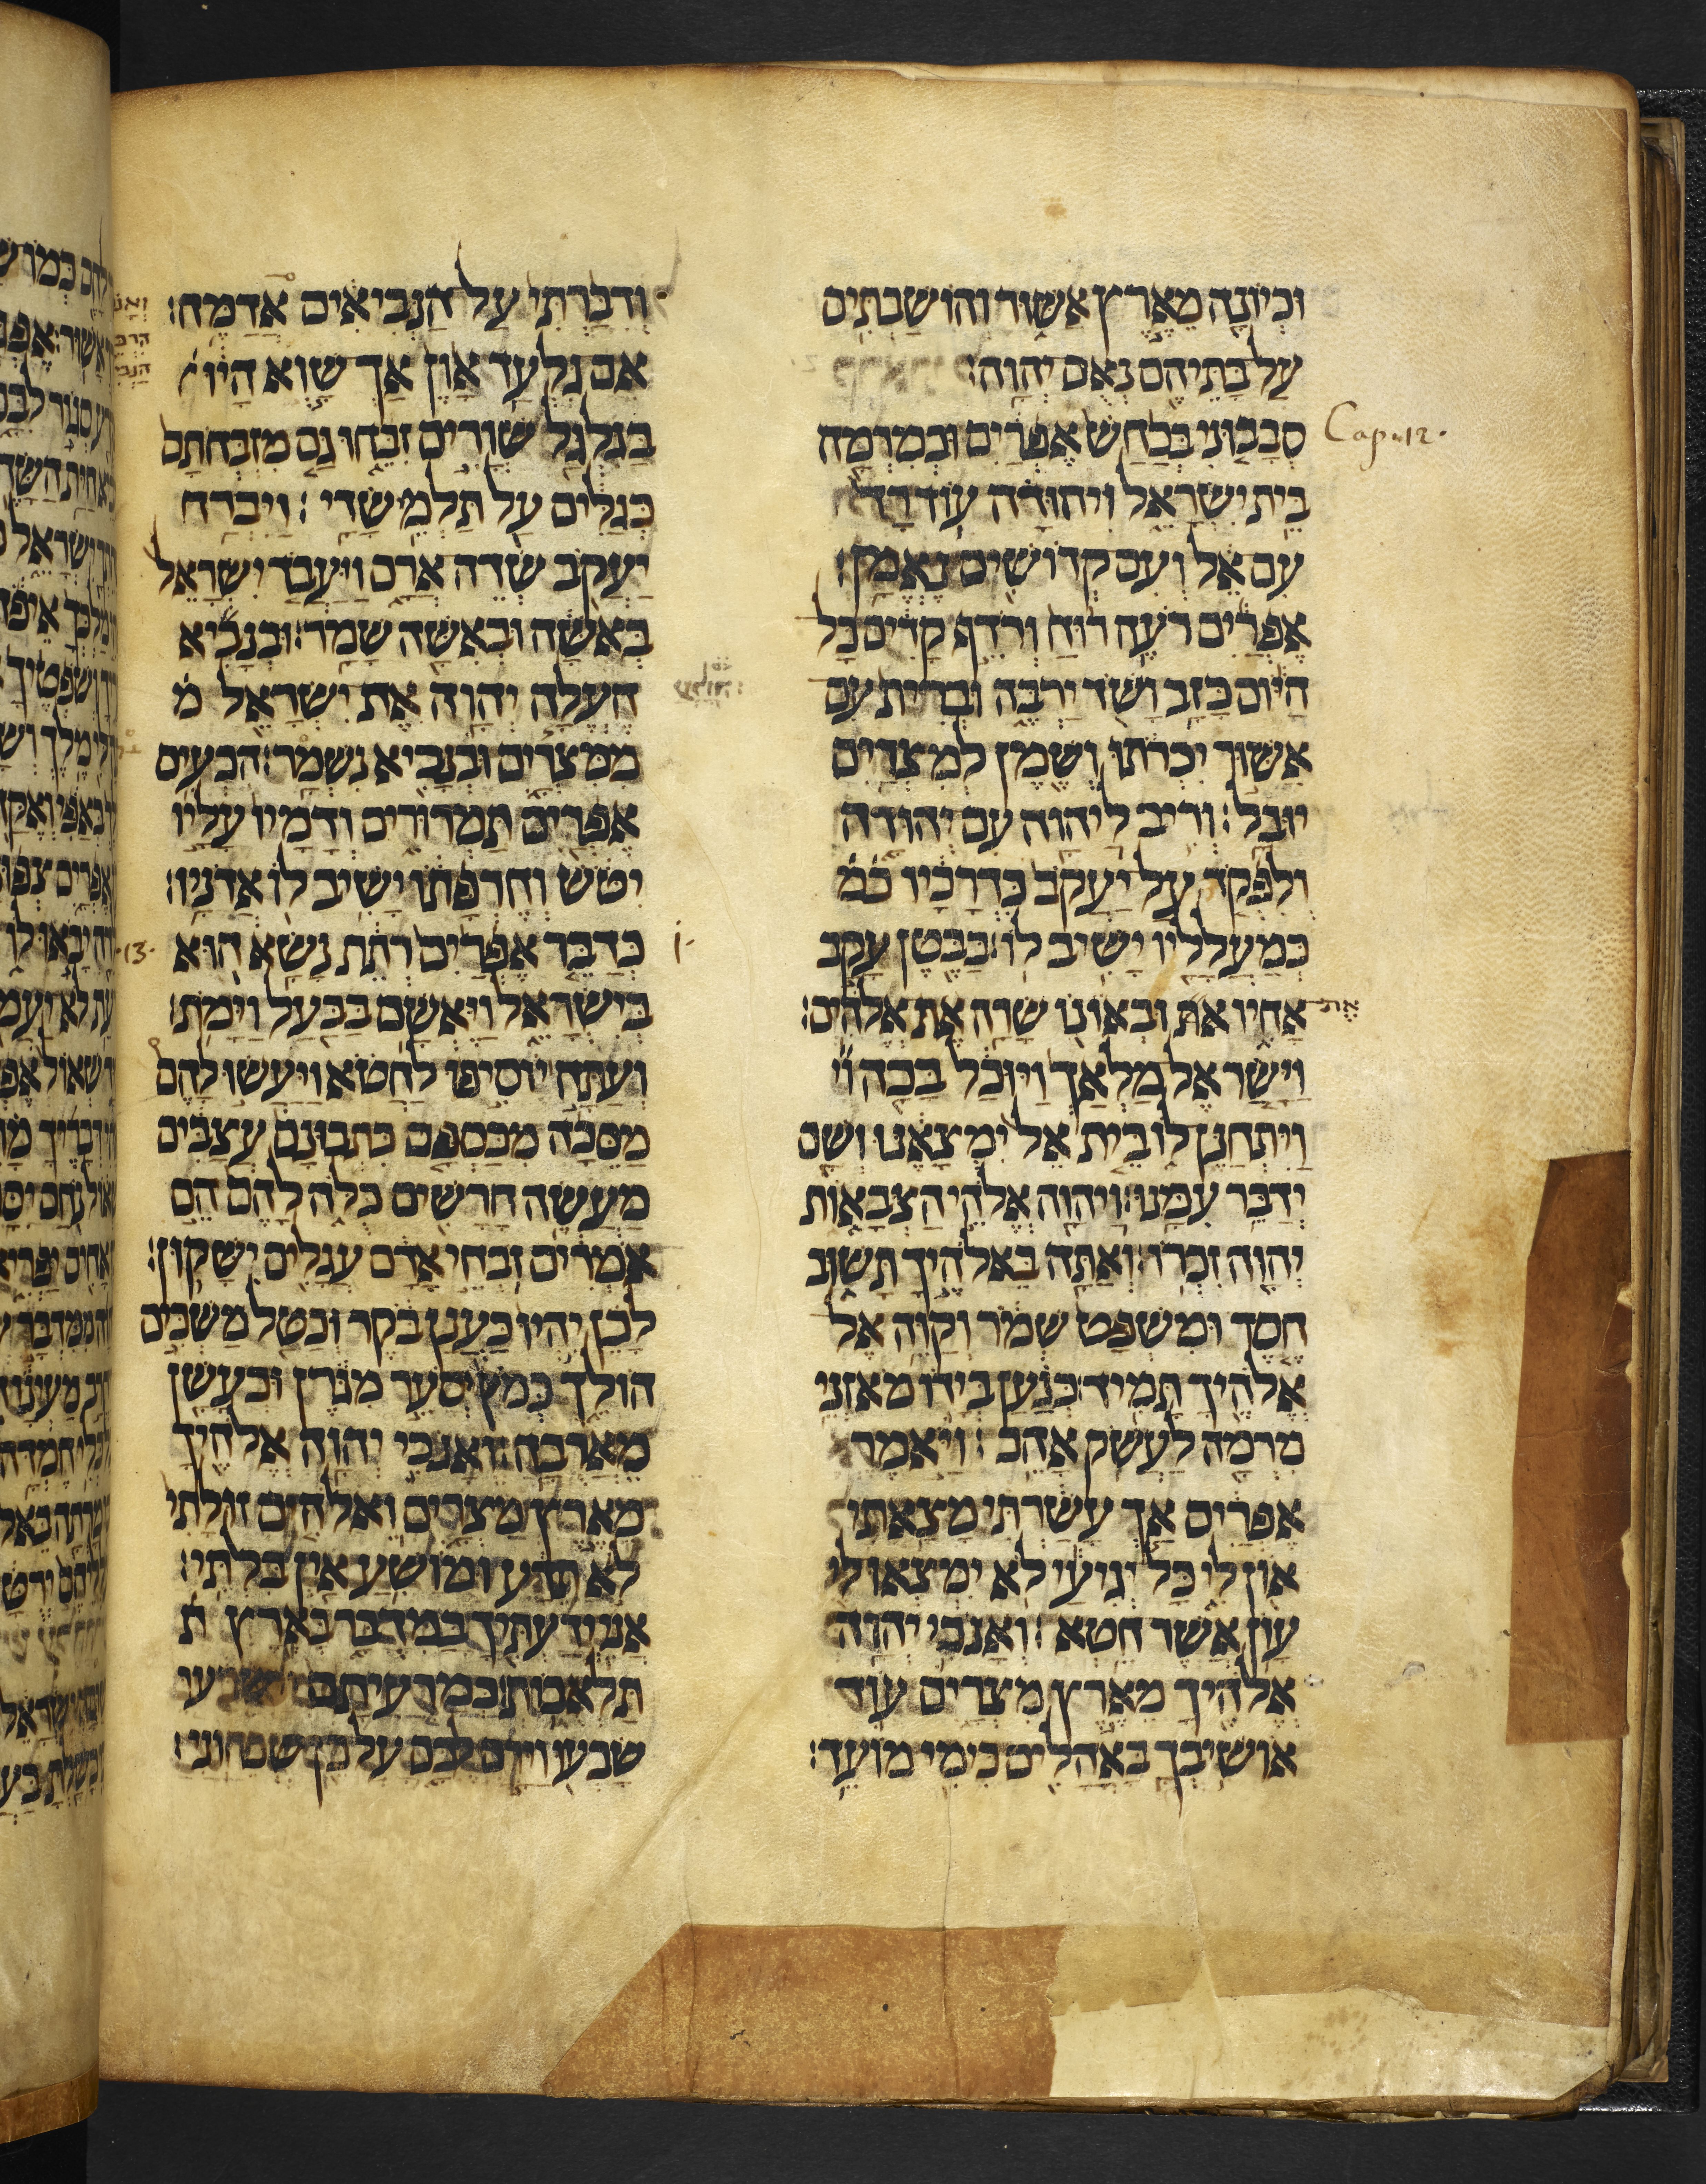 וכיונה מארץ אשור והושבתים
על בתיהם נאם יהוה:
Cap. 12.
סבבוני בכחש אפרים ובמרמה
בית ישראל ויהודה עוד רד
עם אל ועם קדושים נאמן:
אפרים רעה רוח ורדף קדים כל
היום כזב ושד ירבה וברית עם
אשור יכרתו ושמן למצרים
יובל: וריב ליהוה עם יהודה
ולפקד על יעקב כדרכיו כמ
כמעלליו ישיב לו: בבטן עקב
את אחיו את ובאונו שרה את אלהים:
וישר אל מלאך ויוכל בכה וי
ויתחנן לו בית אל ימצאנו ושם
ידבר עמנו: ויהוה אלהי הצבאות
יהוה זכרו: ואתה באלהיך תשוב
חסד ומשפט שמר וקוה אל
אלהיך תמיד: כנען בידו מאזני
מרמה לעשק אהב: ויאמר
אפרים אך עשרתי מצאתי
און לי כל יגיעי לא ימצאו לי
עון אשר חטא: ואנכי יהוה
אלהיך מארץ מצרים עוד
אושיבך באהלים כימי מועד:
ודברתי על הנביאים אדמה:
אם גלעד און אך שוא היו
בגלגל שורים זבחו גם מזבחתם
כגלים על תלמי שדי: ויברח
יעקב שדה ארם ויעבד ישראל
באשה ובאשה שמר: ובנביא
העלה יהוה את ישראל מ
ממצרים ובנביא נשמר: הכעים
אפרים תמרורים ודמיו עליו
יטש וחרפתו ישיב לו אדניו:
13.
כדבר אפרים רתת נשא הוא
בישראל ויאשם בבעל וימת:
ועתה יוסיפו לחטא ויעשו להם
מסכה מכספם כתבונם עצבים
מעשה חרשים כלה להם הם
אמרים זבחי אדם עגלים ישקון:
לכן יהיו כענן בקר וכטל משכים
הולך כמץ יסער מגרן וכעשן
מארבה: ואנכי יהוה אלהיך
מארץ מצרים ואלהים זולתי
לא תדע ומושיע אין בלתי:
אני ידעתיך במדבר בארץ ת
תלאבות: כמרעיתם וישבעו
שבעו וירם לבם על כן שכחוני: